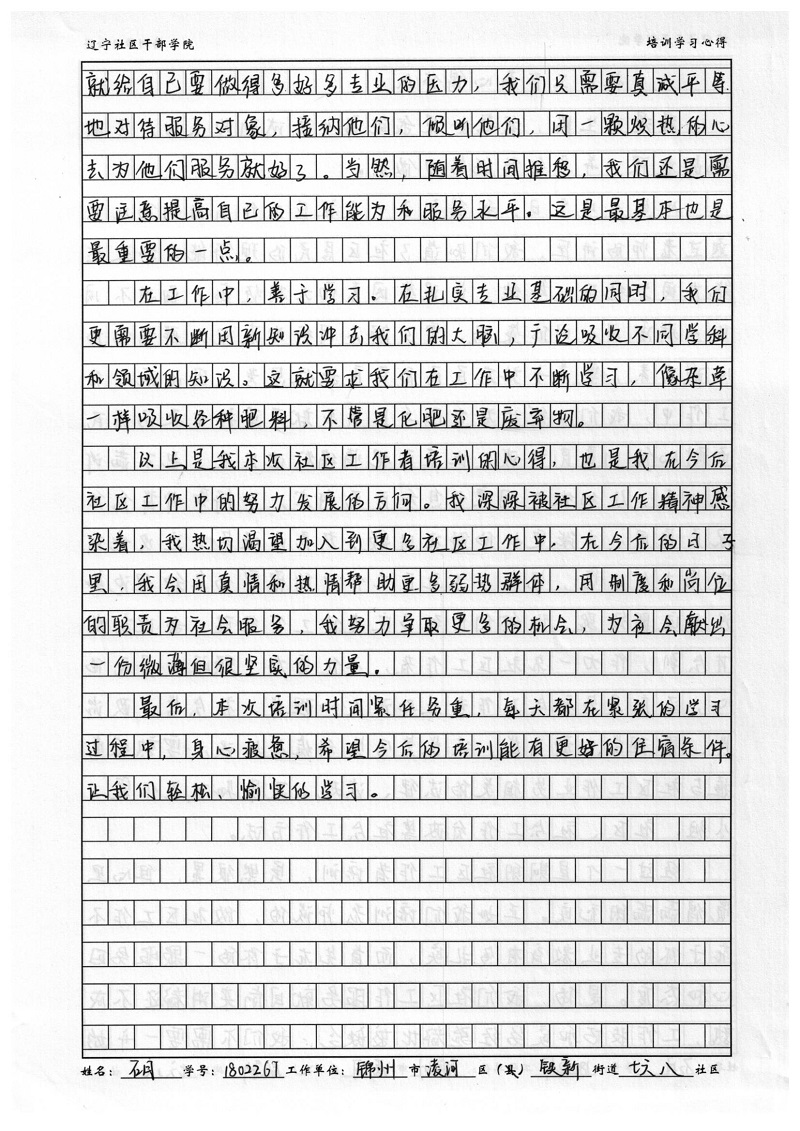 辽宁社区干部学院 培训学习心得
就给自己要做得多好多专业的压力，我们只需要真诚平等
地对待服务对象，接纳他们，倾听他们，用一颗炽热的心
去为他们服务就好了。当然，随着时间推移，我们还是需
要注意提高自己的工作能力和服务水平。这是最基本也是
最重要的一点。
在工作中，善于学习。在扎实专业基础的同时，我们
更需要不断用新知识冲击我们的大脑，广泛吸收不同学科
和领域的知识。这就要求我们在工作中不断学习，像杂草
一样吸收各种肥料，不管是化肥还是废弃物。
以上是我本次社区工作者培训的心得，也是我在今后
社区工作中的努力发展的方向。我深深被社区工作精神感
染着，我热切渴望加入到更多社区工作中，在今后的日子
里，我会用真情和热情帮助更多弱势群体，用制度和岗位
的职责为社会服务，我努力争取更多的机会，为社会献出
一份微薄但很坚实的力量。
最后，本次培训时间紧任务重，每天都在紧张的学习
过程中，身心疲惫，希望今后的培训能有更好的住宿条件。
让我们轻松、愉快的学习。
姓名： 学号：1802267 工作单位：锦州 市 凌河 区（县） 铁新 街道 八 社区